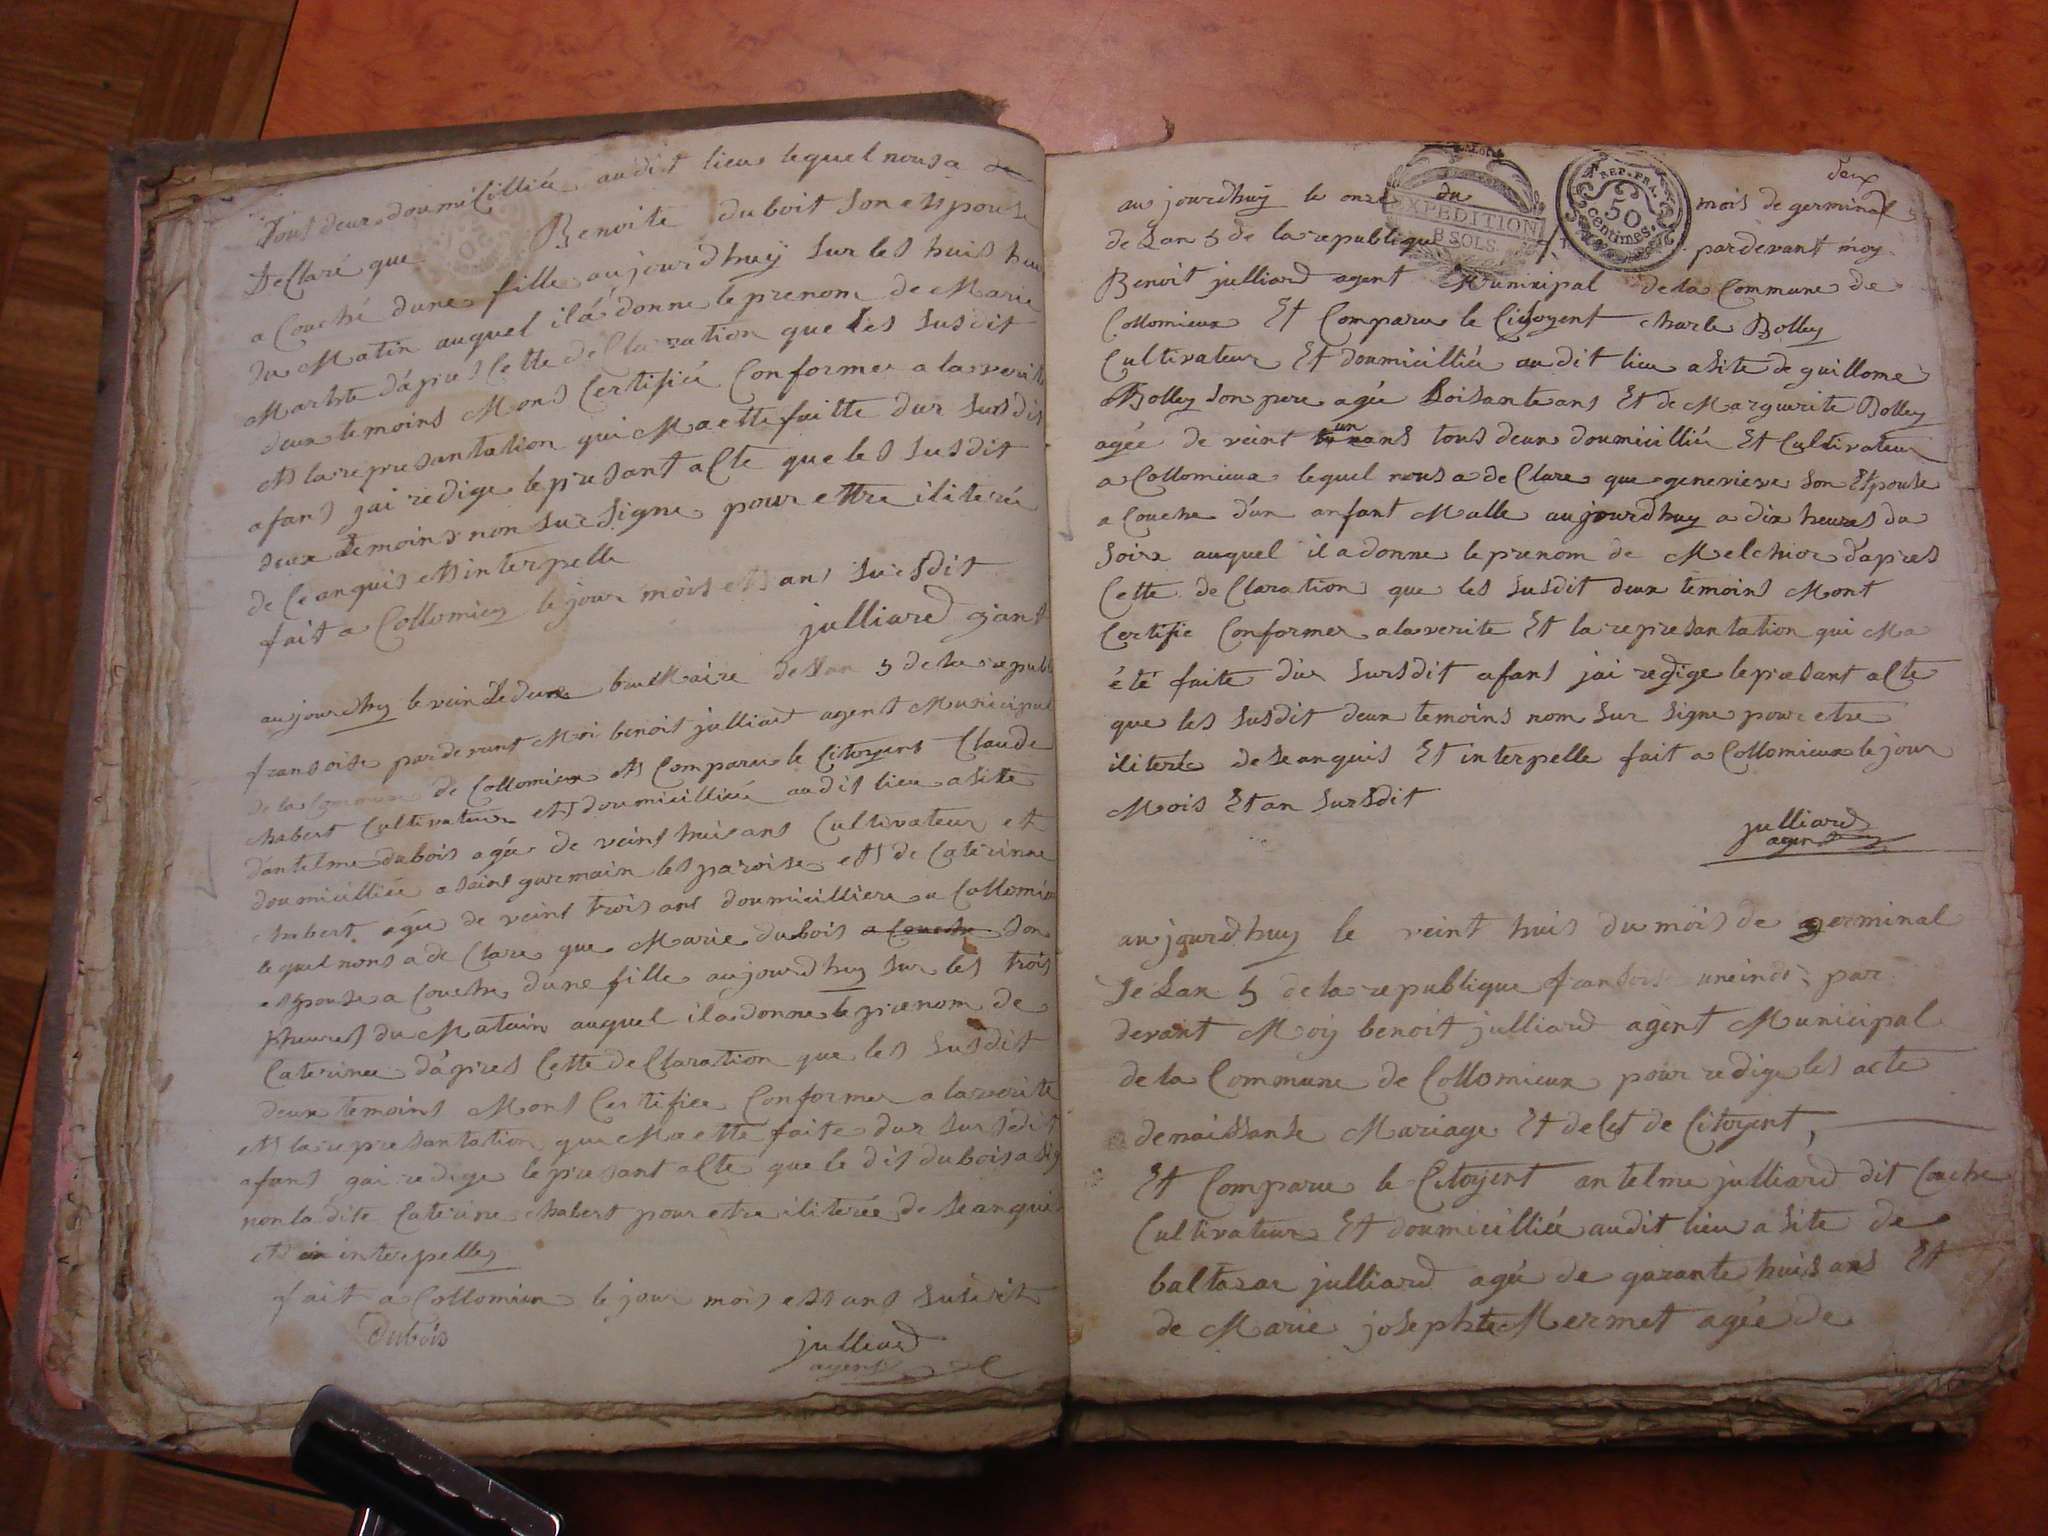 tous deux doumicillié audit lieu lequel nous a de
declaré que Benoite duboit son etspouse
a Couché dune fille aujourdhuy sur les huis heu
du Matin auquel il á donne le prenom de Marie
Marhte dápres Cette deClaration que les susdit
deux temoins Mons Certifié Conformer a la verite
ets la represantation qui Ma ette faitte dur susdit
afans jai redige le presant aCte que les susdit
deux temoins non sur signe pour ettre iliteré
de Ce anquis ets interpelle
fait a Collomieu le jour mois ets ans susdit
julliard agant
aujourdhuy le veindedeux brumaire de Lan 5 de la republ
fransoise par devant Moi benoit julliard agent Municipal
de la Commune de Collomieux ets Comparu le Citoyent Claude
Chabert Cultivateur ets doumicillié audit lieu asite
dántelme dubois agée de veint huis ans Cultivateur et
doumicillié a saint garmain les paroise ets de Caterinne
Chabert agée de veint trois ans doumicilliere a Collomieu
lequel nous a de Clare que Marie dubois a Couche son
etspouse a Couche dune fille aujourdhuy sur les trois
heures du Matain auquel il a donne le prenom de
Caterinee dápres Cette deClaration que les susdit
deux temoins Mons Certifiee Conformer a la verite
ets la represantation que Ma ette faite dur sursdit
afans jai redige le presant aCte que le dit dubois a sig
non la dite Caterine Chabert pour etre iliterée de se anquis
ets in interpelle
fait a Collomieu le jour mois ets ans susdit
Dubois julliard
agent
deux
EXPEDITION
8 SOLS.
REP. FRA.
50
centimes.
aujourdhuy le onze du mois de germinal
de Lan 5 de la republique par devant moy
Benoit julliard agent Municipal de la Commune de
Collomieux Et Comparu le Citoyent charle Bolley
Cultivateur Et doumicillié audit lieu asite de guillome
Bolley son pere agée soisante ans Et de Marguerite Bolley
agée de veint un ans tous deux doumicillié Et Cultivateur
a Collomieux lequel nous a de Clare que genevieve son Etpouse
a Couche dún anfant Malle aujourdhuy a dix heures du
soir auquel il a donne le prenom de Melchior dápres
Cette deClaration que les susdit deux temoins Mont
Certifie Conformer a la verite Et la represantation qui Ma
été faite dur sursdit afans jai redige le presant aCte
que les susdit deux temoins nom sur signe pour etre
iliterée de se anquis Et interpelle fait a Collomieux le jour
Mois Et an sursdit
julliard
agent
aujourdhuy le veint huis du mois de germinal
de Lan 5 de la republique fransoise par
devant Moy benoit julliard agent Municipal
de la Commune de Collomieux pour redige les acte
de naissanse Mariage Et deCet de Citoyent,
Et Comparu le Citoyent antelme julliard dit Couche
Cultivateur Et doumicillié audit lieu asite de
baltasar julliard agée de garante huis ans Et
de Marie josephte Mermet agée de